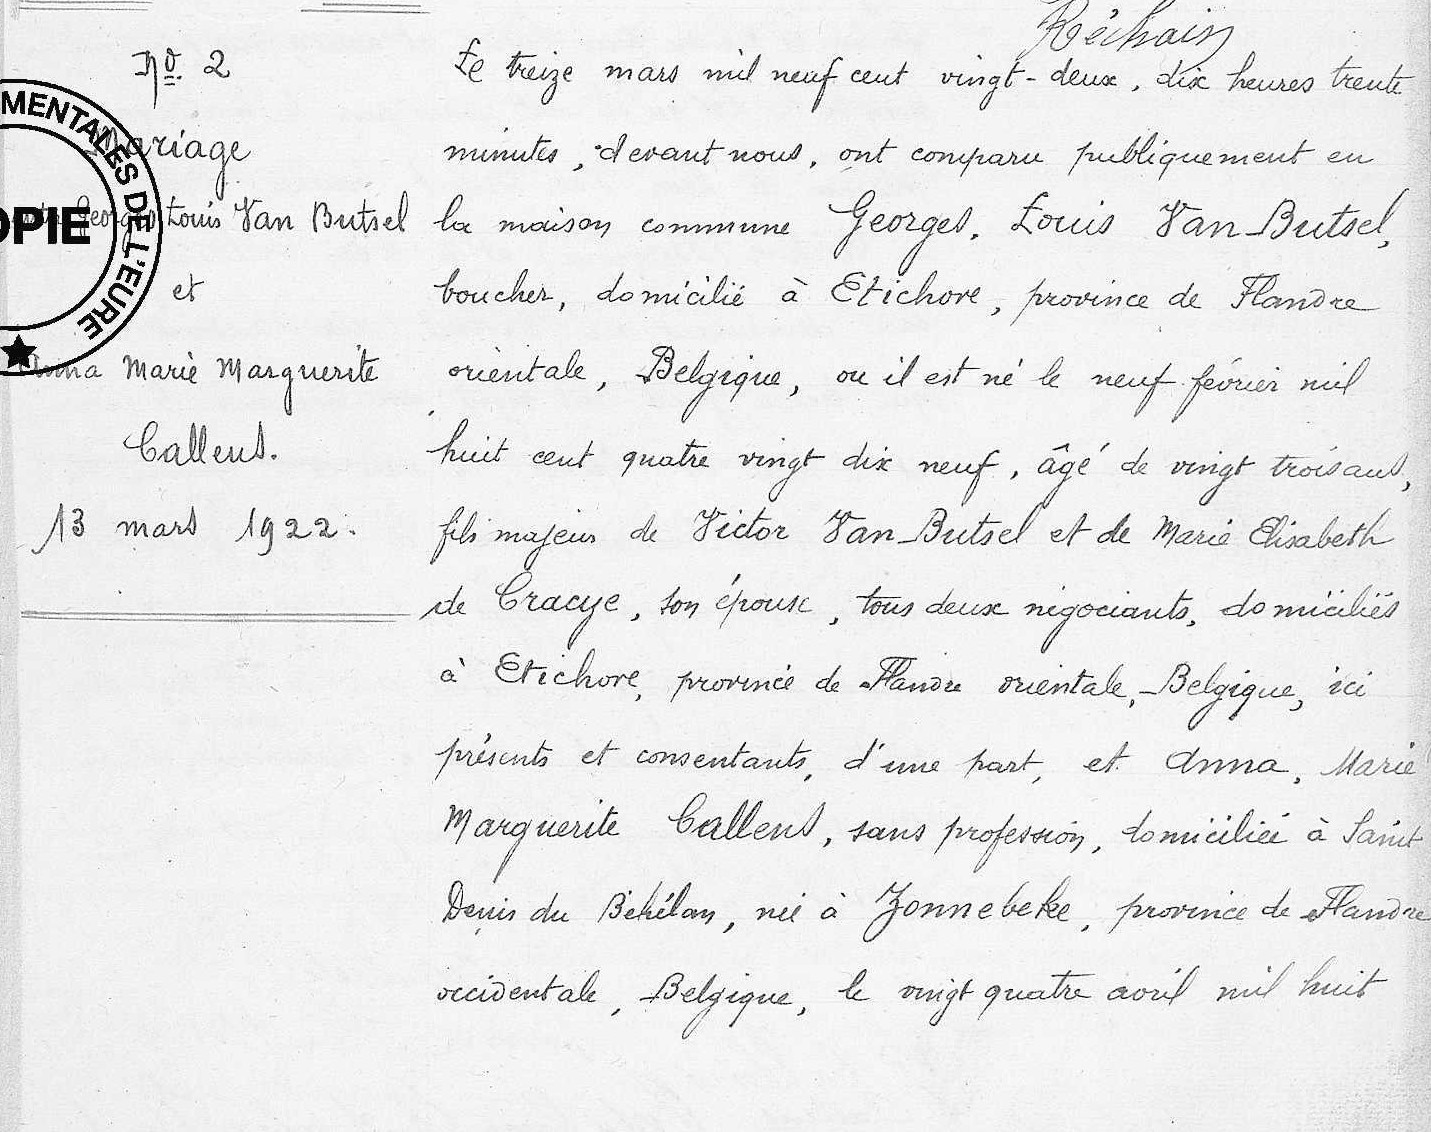 Réchain
No. 2
Mariage
Georges Louis Van Butsel
et
Anna Marie Marguerite
Callens.
13 mars 1922.
MENTALES DE L'EURE
OPIE
Le treize mars mil neuf cent vingt-deux, dix heures trente
minutes, devant nous, ont comparu publiquement en
la maison commune Georges, Louis Van-Butsel,
boucher, domicilié à Etichove, province de Flandre
orientale, Belgique, ou il est né le neuf février mil
huit cent quatre vingt dix neuf, âgé de vingt trois ans,
fils majeur de Victor Van-Butsel et de Marie Elisabeth
de Cracye, son épouse, tous deux négociants, domiciliés
à Etichove, province de Flandre orientale, Belgique, ici
présents et consentants, d'une part, et Anna, Marie
Marguerite Callens, sans profession, domiciliée à Saint
Denis du Béhélan, née à Zonnebeke, province de Flandre
occidentale, Belgique, le vingt quatre avril mil huit